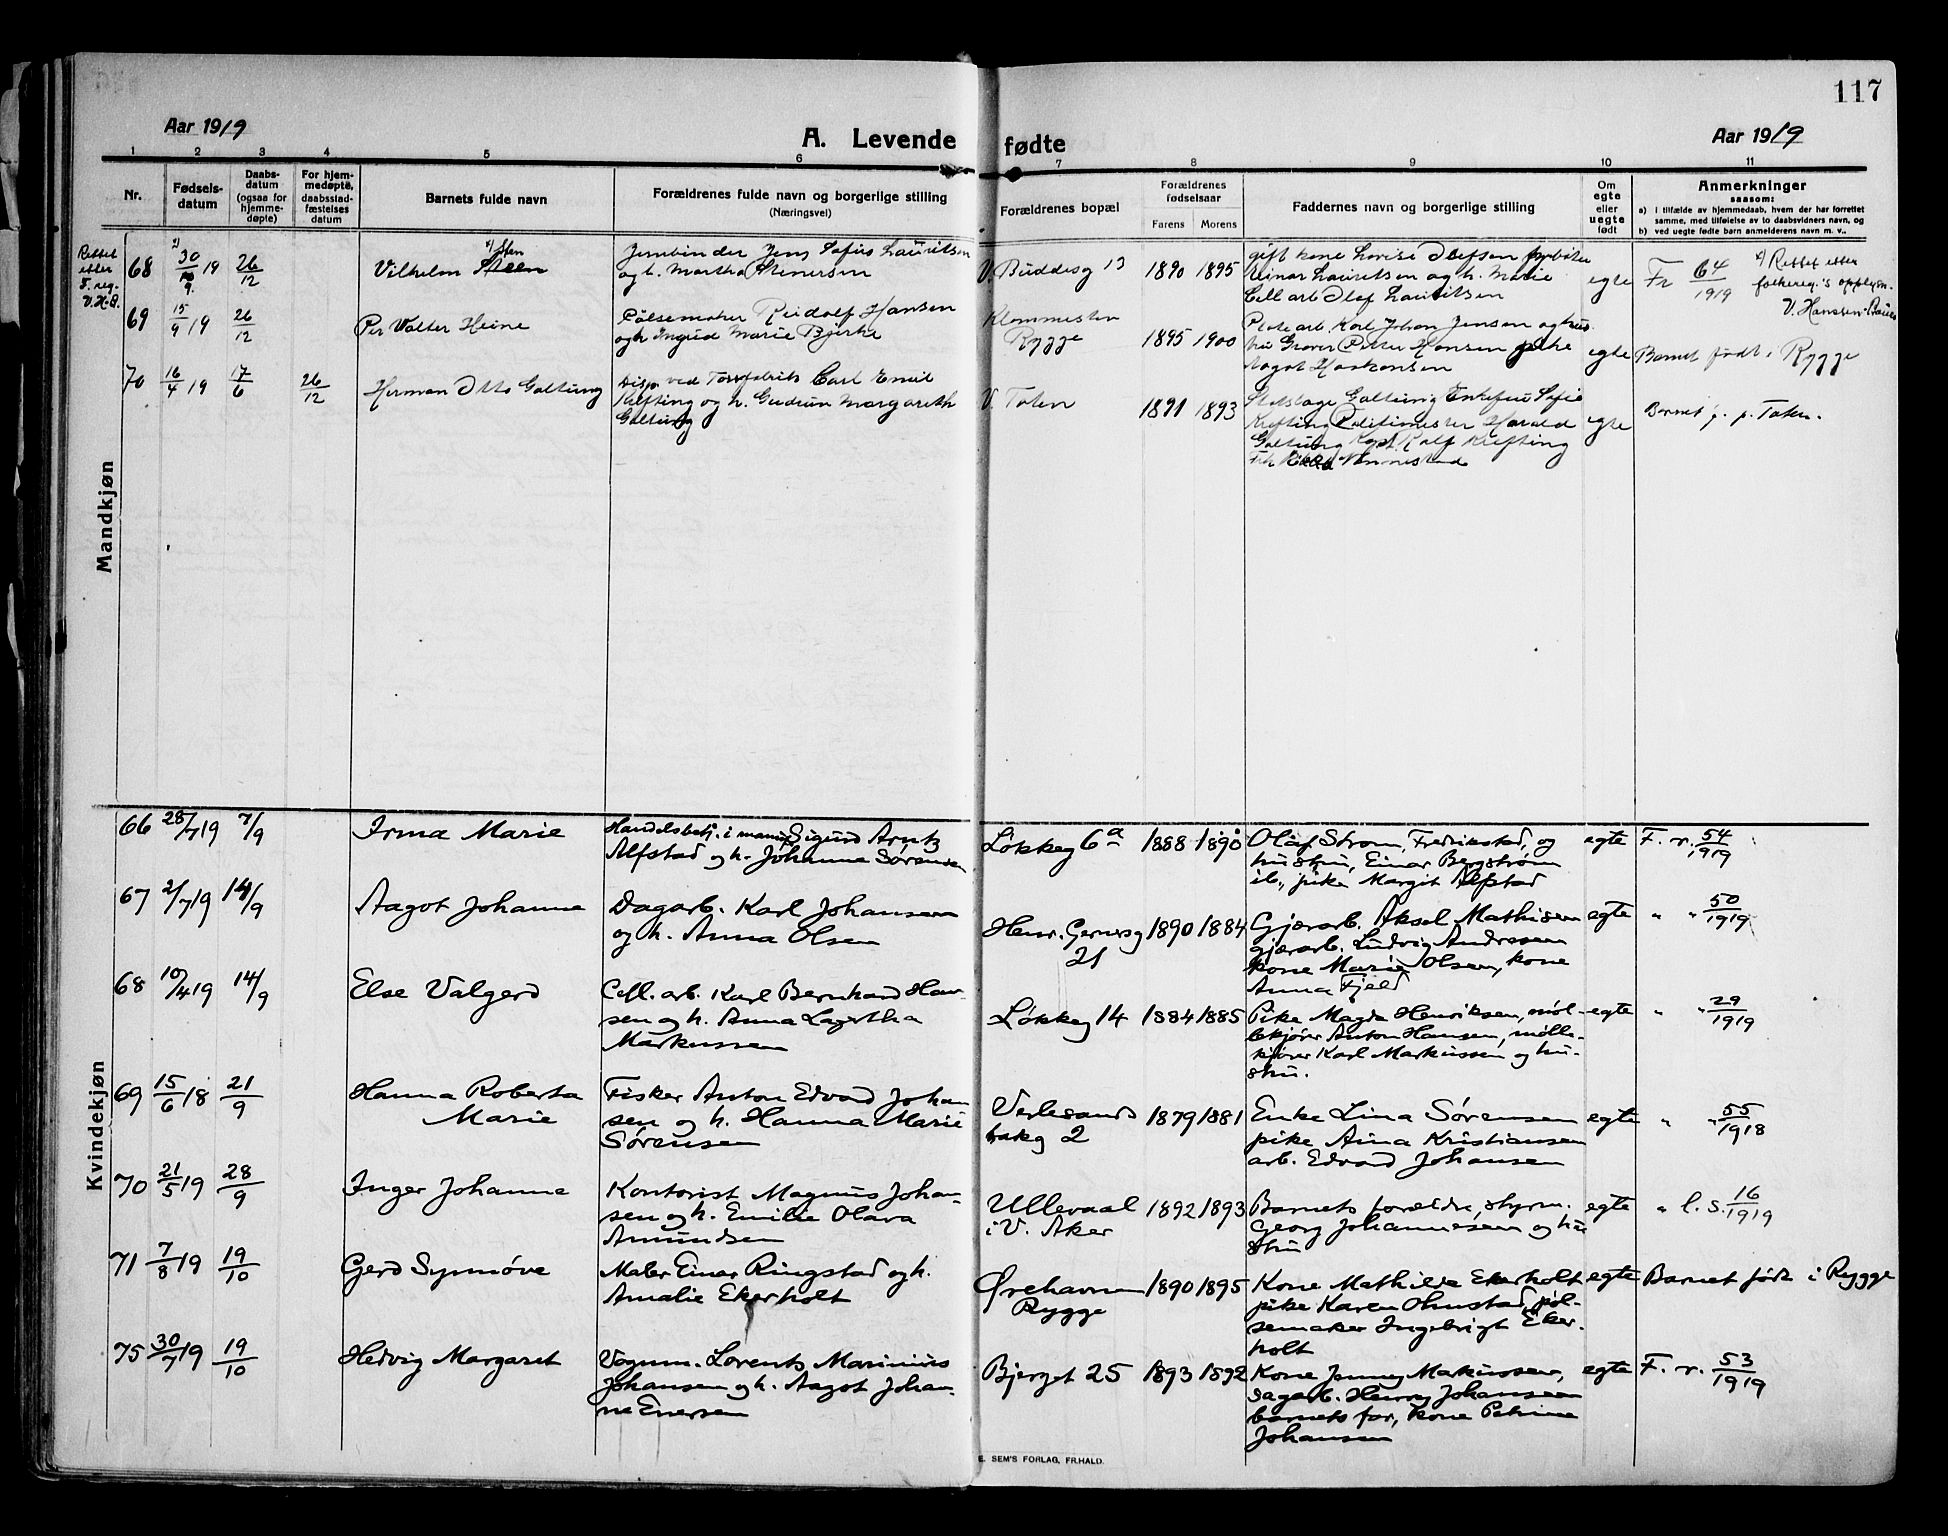 117
Aar 1919
A. Levende fødte
Aar 1919
1 2 3 4 5 6 7 8 9 10 11
Nr.
Fødsels-
datum
Daabs-
datum
(ogsaa for
hjemme-
døpte)
For hjem-
medøpte,
daabsstad-
fæstelses
datum
Barnets fulde navn
Forældrenes fulde navn og borgerlige stilling
(Næringsvei)
Forældrenes bopæl
Forældrenes
fødselsaar
Farens Morens
Faddernes navn og borgerlige stilling
Om
egte
eller
uegte
født
Anmerkninger
saasom:
a) i tilfælde av hjemmedaab, hvem der har forrettet
samme, med tilføielse av to daabsvidners navn, og
b) ved uegte fødte barn anmelderens navn m. v..
Mandkjøn
Rettet
efter
F. reg.
V. H-B.
68 30/9 19 26/12
Vilhelm Steen
Sten
Jernbinder Jens Sofus Lauritsen
og h. Martha Steinersen
V. Buddesg 13
1890 1895
gift kone Lovise Olefsen
Einar Lauritsen og h. Marie
Cell arb Olaf Lauritsen
egte
Fr 64/1919
Rettet efter
folkereg.'s opplysn.
V. Hansen-Bauer
69 15/9 19 26/12
Per Walter Heine
Pølsemaker Reidolf Hansen
og h Ingrid Marie Bjerke
Klommesten
Rygge
1895 1900
arb. Karl Johan Jensen og hus
tru Graver Petter Hansen pike
Aagot Haakonsen
egte
Barnet født i Rygge
70 16/4 19 17/6 26/12
Herman Otto Galtung
Disp. ved Torvfabrik Carl Emil
Krefting og h. Gudrun Margareth
Galtung
V. Toten
1891 1893
Galtung Enkefru Sofie
Krefting Politimester Harald
Galtung Kapt Rolf Krefting
Frk Nannestad
egte
Barnet f. p. Toten.
Kvindekjøn
66 28/7 19 7/9
Irma Marie
Handelsbetj. i manuf Sigurd Arntz
Alfstad og h. Johanne Sørensen
Løkkeg 6a
1888 1890
Olaf Strøm, Fredrikstad, og
hustru, Einar Bergstrøm
ib., pike Margit Alfstad
egte
F. r. 54/1919
67 2/7 19 14/9
Aagot Johanne
Dagarb. Karl Johansen
og h. Anna Olsen
Henr. Gernersg
21
1890 1884
Gjærarb. Aksel Mathisen
gjærarb. Ludvig Andresen
kone Marie Olsen, kone
Anna Fjeld
egte
" " 50/1919
68 10/4 19 14/9
Else Valgerd
Cell. arb. Karl Bernhard Han-
sen og h. Anna Lagertha
Markussen
Løkkeg 14
1884 1885
Pike Magda Henriksen, møl-
lekjører Anton Hansen, mølle-
kjører Karl Markussen og hu-
stru.
egte
" " 29/1919
69 15/6 18 21/9
Hanna Roberta
Marie
Fisker Anton Edvard Johan
sen og h. Hanna Marie
Sørensen
Verlesands
bakg 2
1879 1881
Enke Lina Sørensen
pike Aina Kristiansen
arb. Edvard Johansen
egte
" " 55/1918
70 21/5 19 28/9
Inger Johanne
Kontorist Magnus Johan-
sen og h. Emilie Olava
Amundsen
Ullevaal
i V. Aker
1892 1893
Barnets forældre, styrm.
Georg Johannesen og hu
stru
egte
" l. s. 16/1919
71 7/8 19 19/10
Gerd Synnøve
Maler Einar Ringstad og h.
Amalie Ekerholt
Ørehavn
Rygge
1890 1895
Kone Mathilde Ekerholt
pike Karen Olmstad, pøl-
semaker Ingebrigt Eker-
holt
egte
Barnet født i Rygge
75 30/7 19 19/10
Hedvig Margaret
Vognm. Lorents Marinius
Johansen og h. Aagot Johan-
ne Enersen
Bjerget 25
1893 1892
Kone Jenny Markussen,
dagarb. Henry Johansen
barnets far, kone Petrine
Johansen
egte
F. r. 53/1919
E. SEM'S FORLAG, FR.HALD.